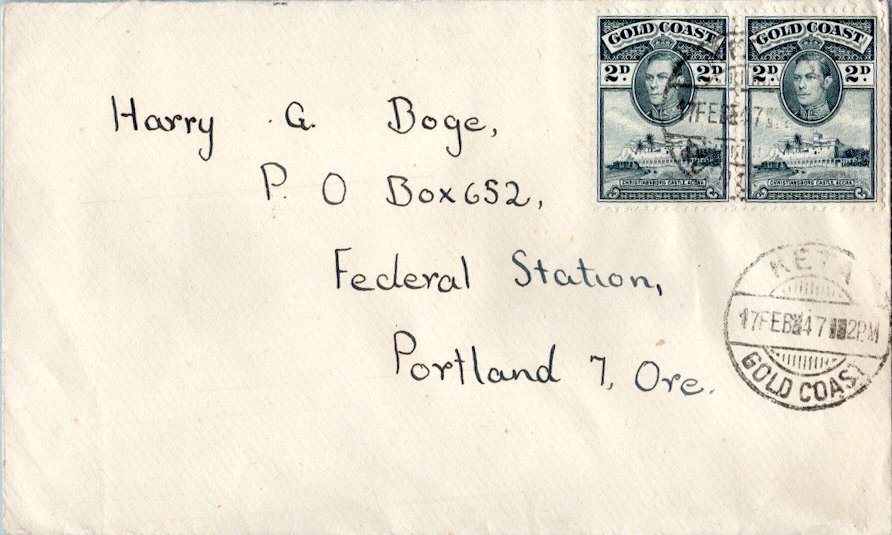 GOLD COAST GOLD COAST
2D. 2D. 2D. 2D.
17FEB 47
CHRISTIANSBORG CASTLE, ACCRA CHRISTIANSBORG CASTLE, ACCRA
Harry G. Boge,
P. O Box 652,
Federal Station,
Portland 7, Ore.
KETA
17FEB 47 2PM
GOLD COAST